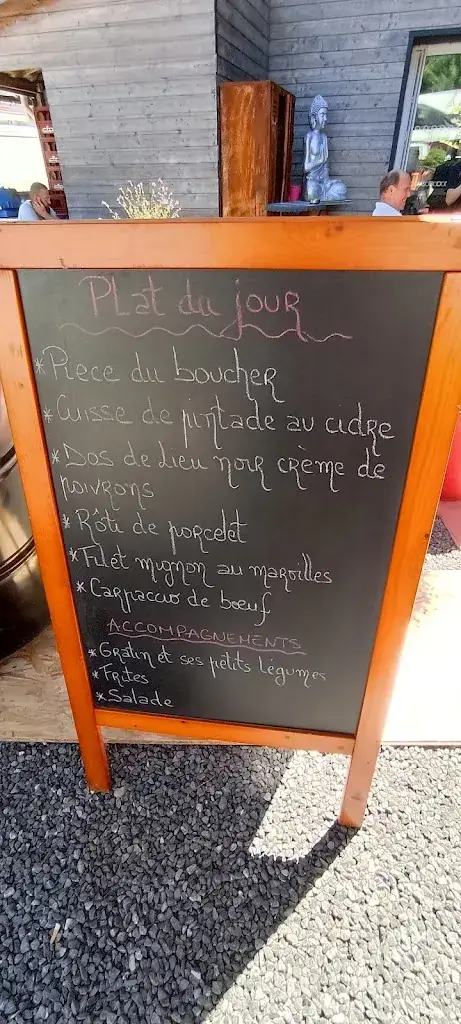 PLat du jour
*Piece du boucher
*Cuisse de pintade au cidre
*Dos de Lieu noir crème de
poivrons
*Rôti de porcelet
*Filet mignon au maroilles
*Carpaccio de bœuf
ACCOMPAGNEMENTS
*Gratin et ses petits légumes
*Frites
*Salade